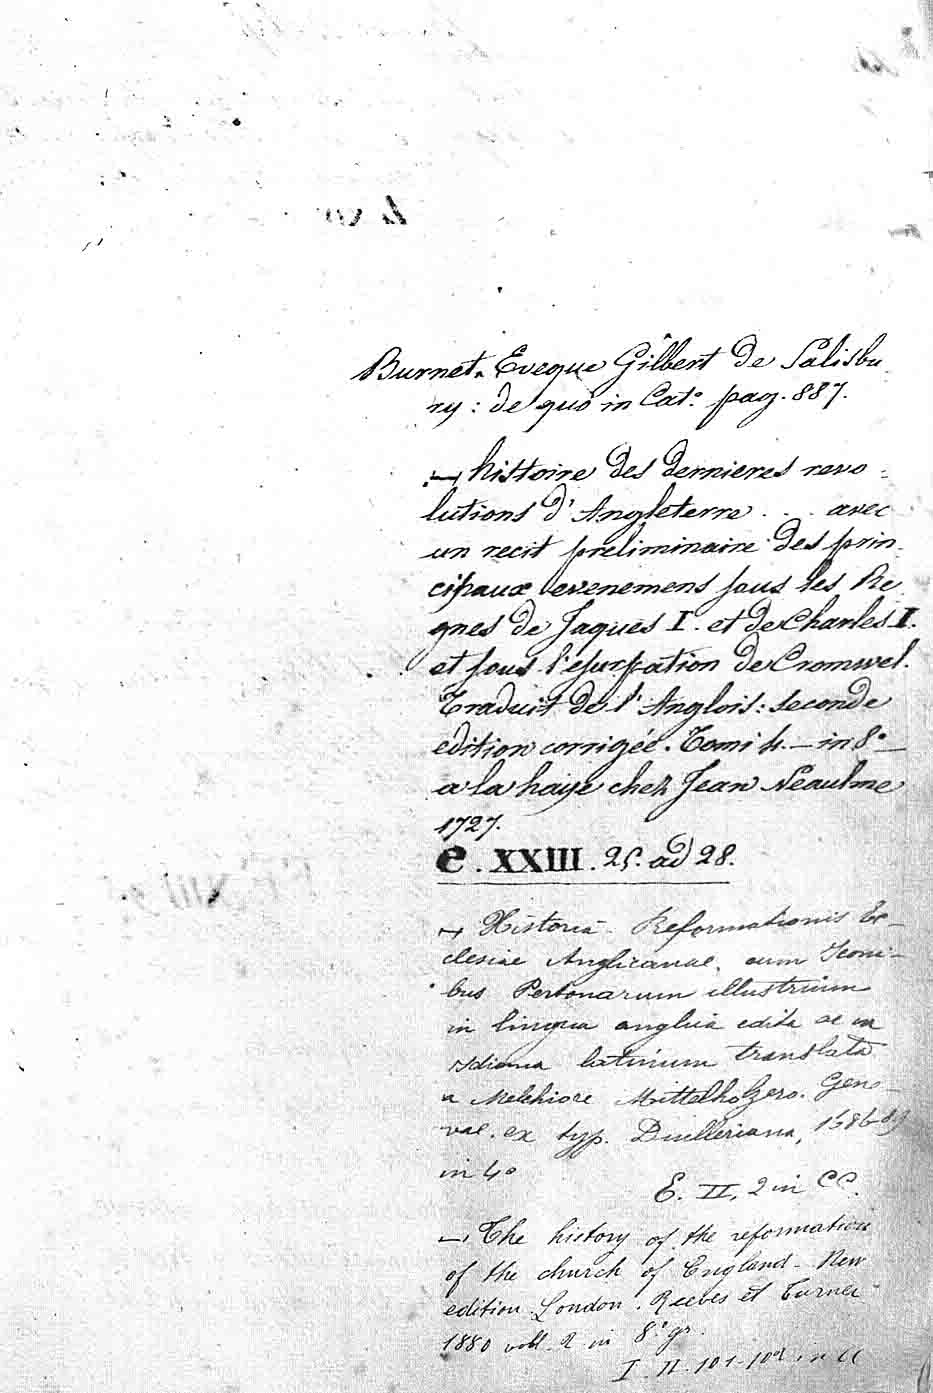 Burnet. Eveque Gilbert de Salisbu
ry : de quo in Cat.º pag. 887.
— histoire des dernieres revo-
lutions d'Angleterre . . . avec
un recit preliminaire des prin-
cipaux evenemens sous les Re
gnes de Jaques I. et de Charles I.
et sous l'usurpation de Cromwel.
Traduit de l'Anglois: seconde
edition corrigée. Tomi 4. — in 8º
a la haye chez Jean Neaulme
1727.
e. XXIII. 25. ad 28.
— Historia Reformationis Ec-
clesiae Anglicanae, cum Iconi-
bus Personarum illustrium
in lingua anglica edita ac in
Idioma latinum translata
a Melchiore Mittelholzero. Gene-
vae. ex typ. Duilleriana,
in 4º
E. II, 2 in CC.
— The history of the reformation
of the church of England. New
edition. London. Reeves et Turner
1880 voll. 2 in 8º gr.
I. II. 101-102 in